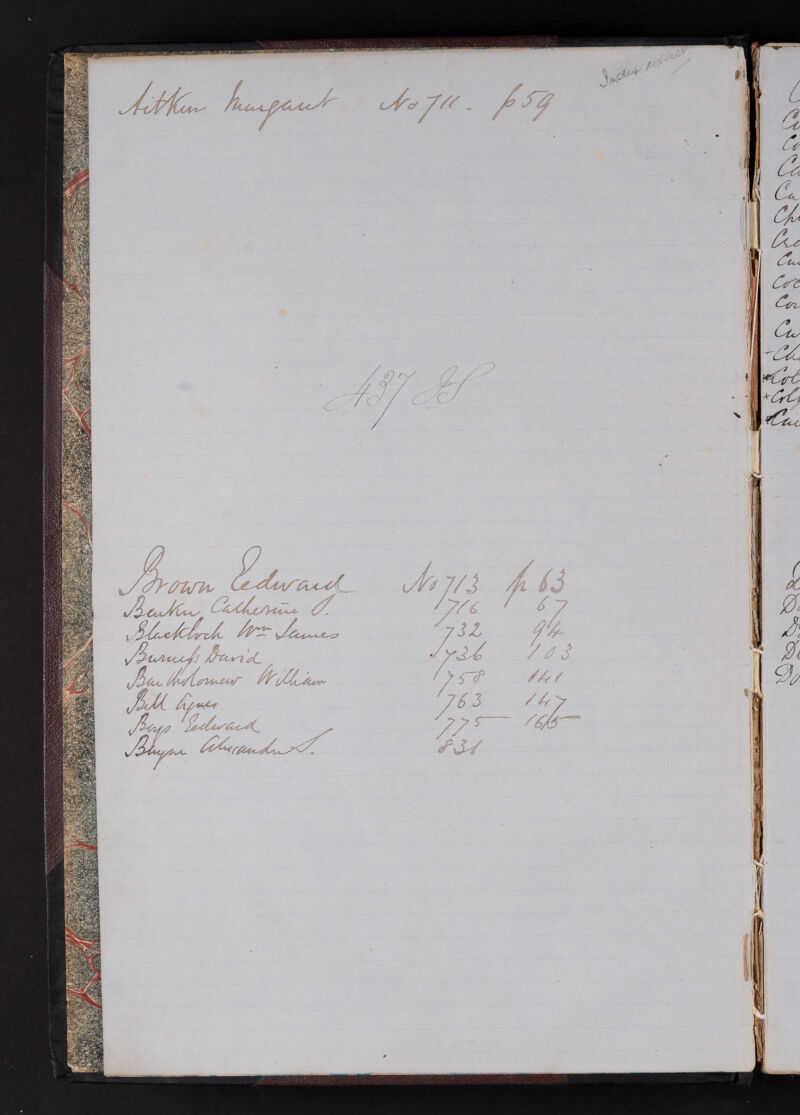 Index correct
Aitken Margaret No 711. p 59
437 JS
Brown Edward No 713 p 63
Barker Catherine P. 716 67
Blackloch Wm James 732 94
Burness David 736 103
Bartholomew William 758 141
Bell Agnes 763 147
Boys Edward 775 165
Bayne Alexander S. 831